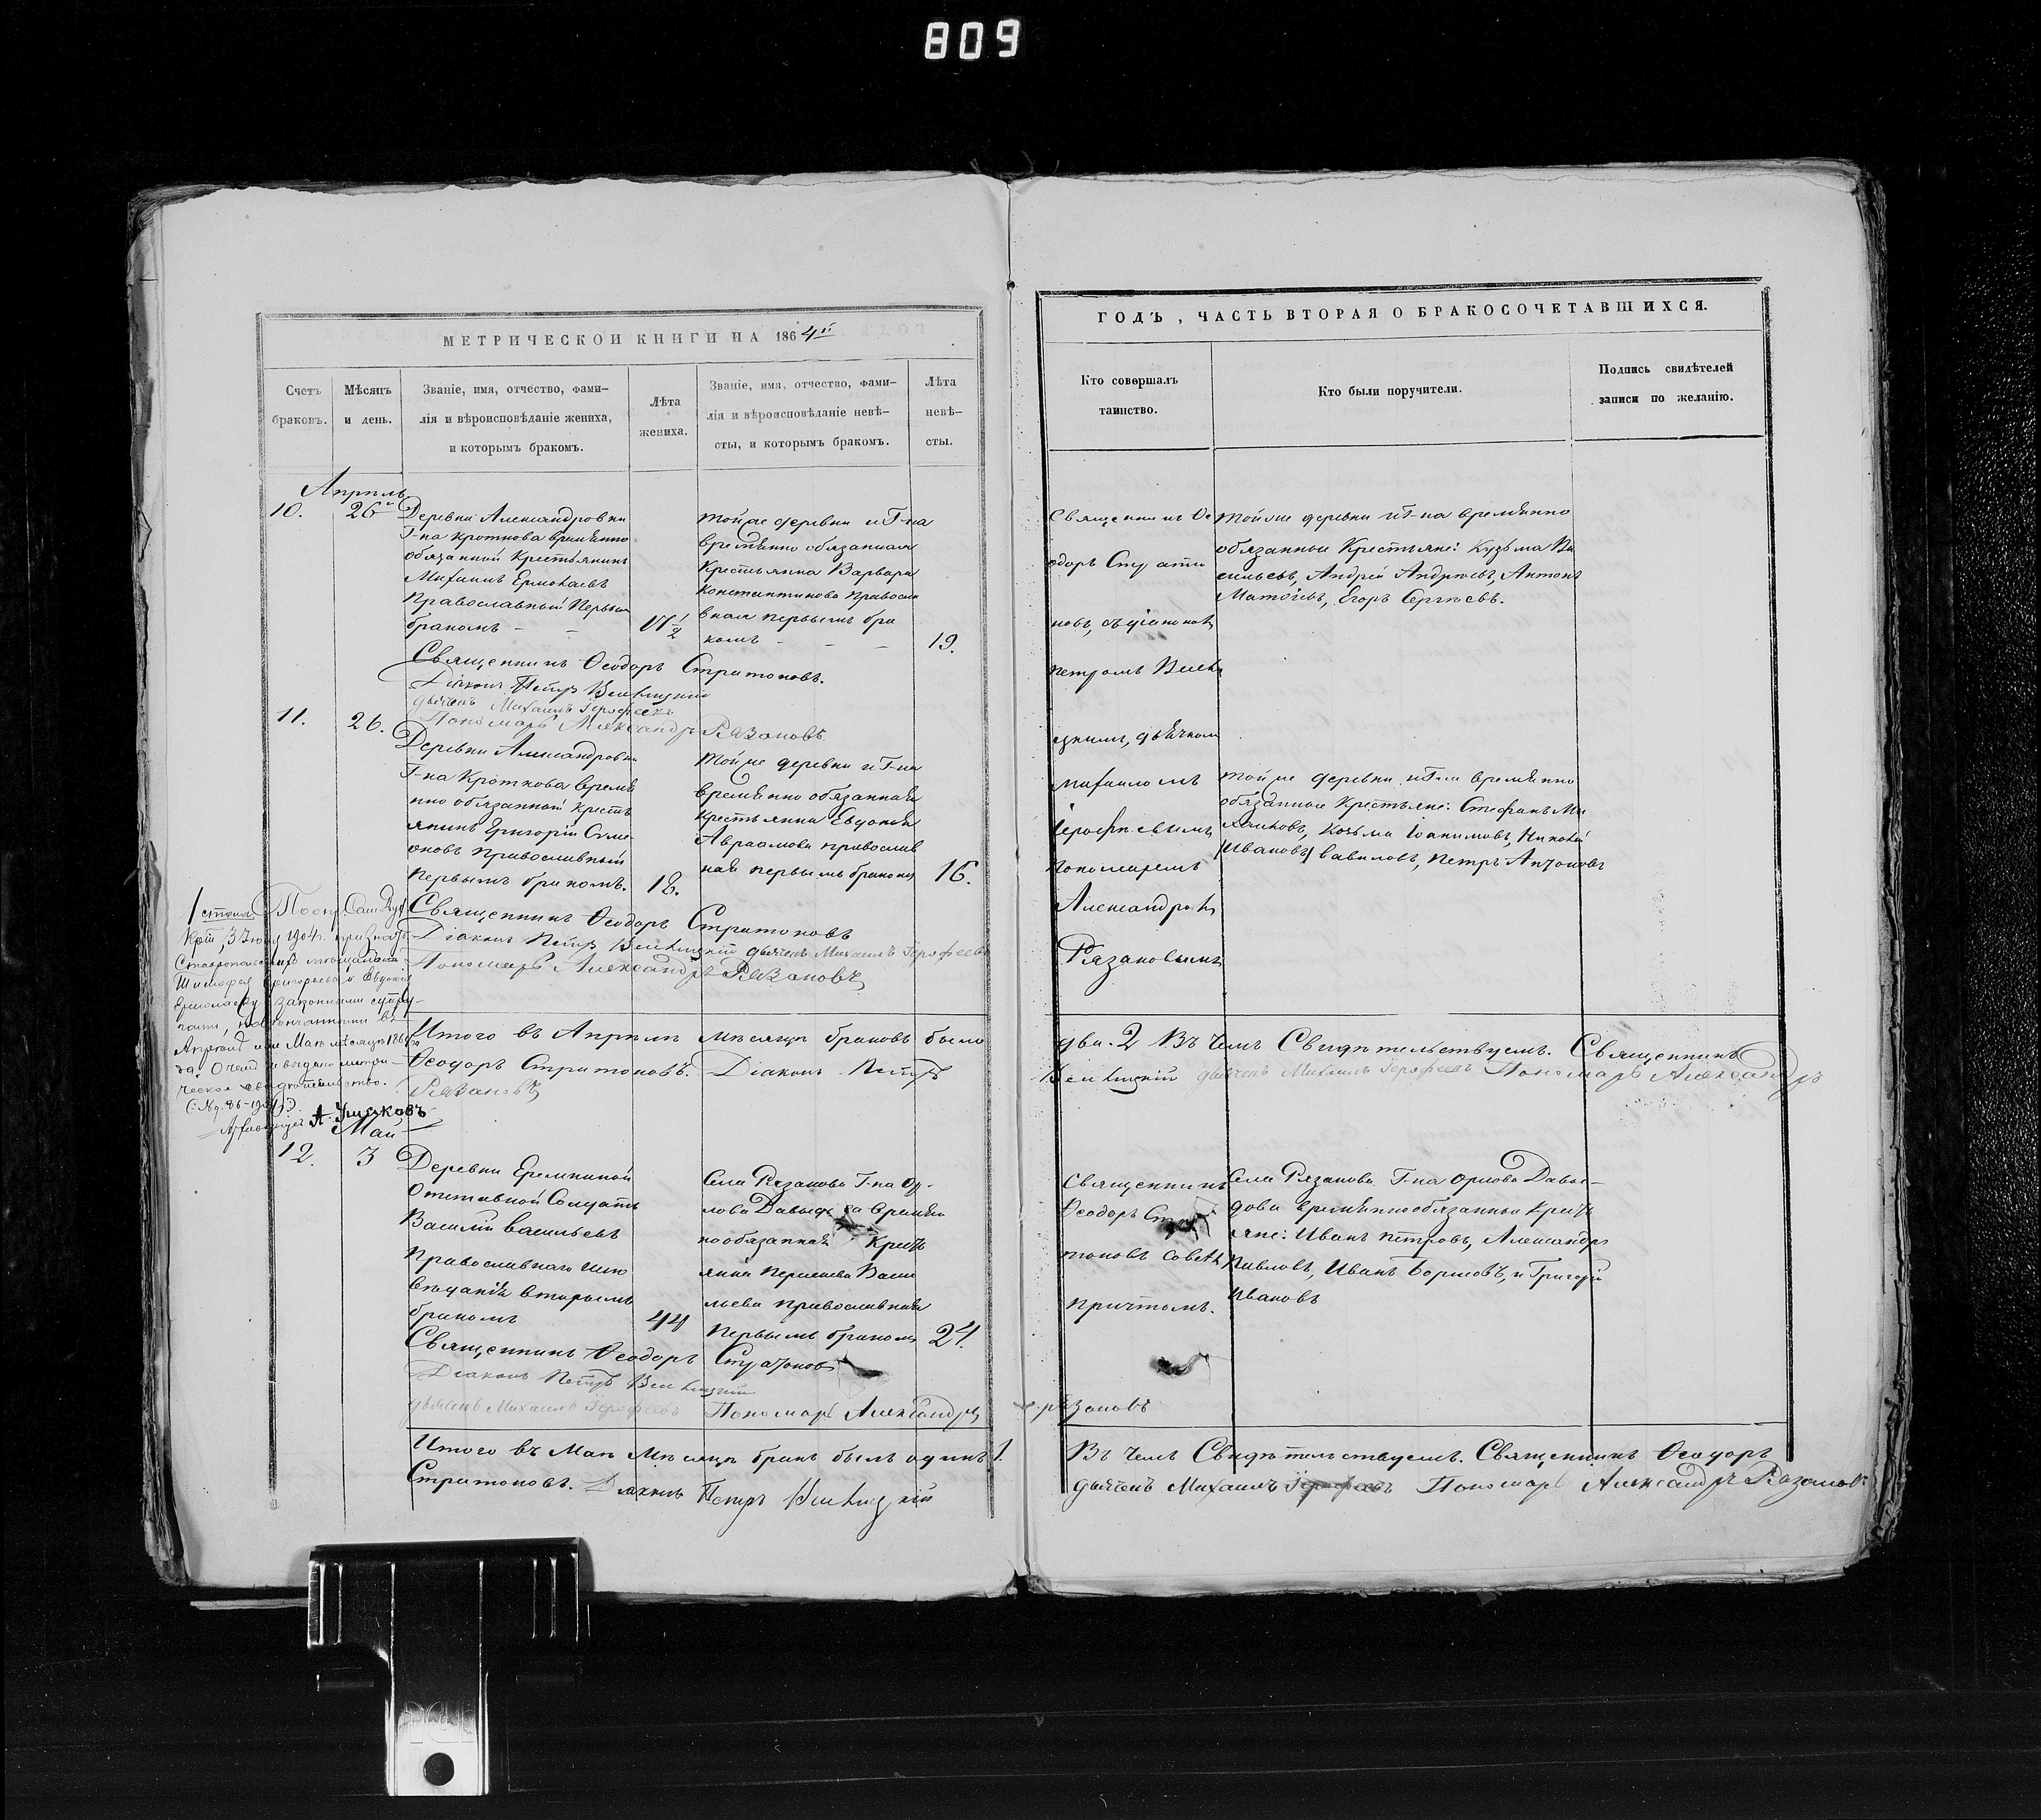 809
МЕТРИЧЕСКОЙ КНИГИ НА 1864й
Счетъ браковъ.
Мѣсяцъ и день.
Званіе, имя, отчество, фами-
лія и вѣроисповѣданіе жениха,
и которымъ бракомъ.
Лѣта
жениха.
Званіе, имя, отчество, фами-
лія и вѣроисповѣданіе невѣ-
сты, и которымъ бракомъ.
Лѣта
невѣ-
сты.
Апрѣль
10.
26й
Деревни Александровки
Г-на Кроткова временно
обязанной Крестьянинъ
Михаилъ Ермолаевъ
Православный Первымъ
бракомъ
17½
Тойже деревни и Г-на
временно обязанная
Крестьянка Варвара
Константинова Правосла
вная первымъ бра
комъ
19.
Священникъ Ѳеодоръ Стратоновъ.
Діаконъ Петръ
дьячекъ Михаилъ Іерофеевъ
Пономарь Александръ Рязановъ
11.
26.
Деревни Александровки
Г-на Кроткова времен
нно обязанный Кресть
янинъ Григорій Симе
оновъ Православный
Первымъ бракомъ.
18.
Тойже деревни и Г-на
временно обязанная
Крестьянка Евдокія
Авраамова православ
ная первымъ бракомъ
16.
Священникъ Ѳеодоръ Стратоновъ
Діаконъ Петръ дьячекъ Михаилъ Іерофеевъ
Пономарь Александръ Рязановъ
3 Іюня 1904 г.
Григорьева и Евдокію
Ермолаеву законными супру-
гами, повѣнчанными въ
Апрѣлѣ или Маѣ мѣсяцѣ 186
да. О чемъ и выдано метри-
ческое свидѣтельство.
А. Ушаковъ
Итого въ Апрѣлѣ мѣсяцѣ браковъ было
Ѳеодоръ Стратоновъ. Діаконъ Петръ
Рязановъ
Май
12.
3
Деревни Еремкиной
Отставной Солдатъ
Василій Васильевъ
Православнаго испо
вѣданія вторымъ
бракомъ
44
Села Рязанова Г-на Ор-
лова Давыдова времен
нообязанная Кресть
янка Васи
льева православная
первымъ бракомъ
24.
Священникъ Ѳеодоръ Стратоновъ
Діаконъ Петръ
дьячекъ Михаилъ Іерофеевъ Пономарь Александръ
Итого въ Маѣ мѣсяцѣ бракъ былъ одинъ 1.
Стратоновъ. Діаконъ Петръ
ГОДЪ, ЧАСТЬ ВТОРАЯ О БРАКОСОЧЕТАВШИХСЯ.
Кто совершалъ
таинство.
Кто были поручители.
Подпись свидѣтелей
записи по желанію.
Священникъ Ѳе
одоръ Страти
новъ, съ діакономъ
Петромъ
цкимъ, дьячкомъ
Михаиломъ
Іерофеевымъ
Пономаремъ
Александромъ
Рязановымъ
Тойже деревни и Г-на временно
обязанные Крестьяне: Кузьма Ва
сильевъ, Андрей Андреевъ, Антонъ
Матвѣевъ, Егоръ Сергѣевъ.
Тойже деревни и Г-на временно
обязанные Крестьяне: Стефанъ Ми
хайловъ, Козьма Іоакимовъ, Николай
(Ивановъ) Вавиловъ, Петръ Антоновъ
два. 2 Въ чемъ Свидѣтельствуемъ. Священникъ
дьячекъ Михаилъ Іерофеевъ Пономарь Александръ
Священникъ
Ѳеодоръ Стра
тоновъ совсѣмъ
причтомъ.
Села Рязанова Г-на Орлова Давы-
дова временнообязанные Кресть
яне: Иванъ Петровъ, Александръ
Павловъ, Иванъ Борисовъ, и Григорій
Ивановъ
Рязановъ
Въ чемъ Свидѣтельствуемъ. Священникъ Ѳеодоръ
дьячекъ Михаилъ Іерофеевъ Пономарь Александръ Рязановъ